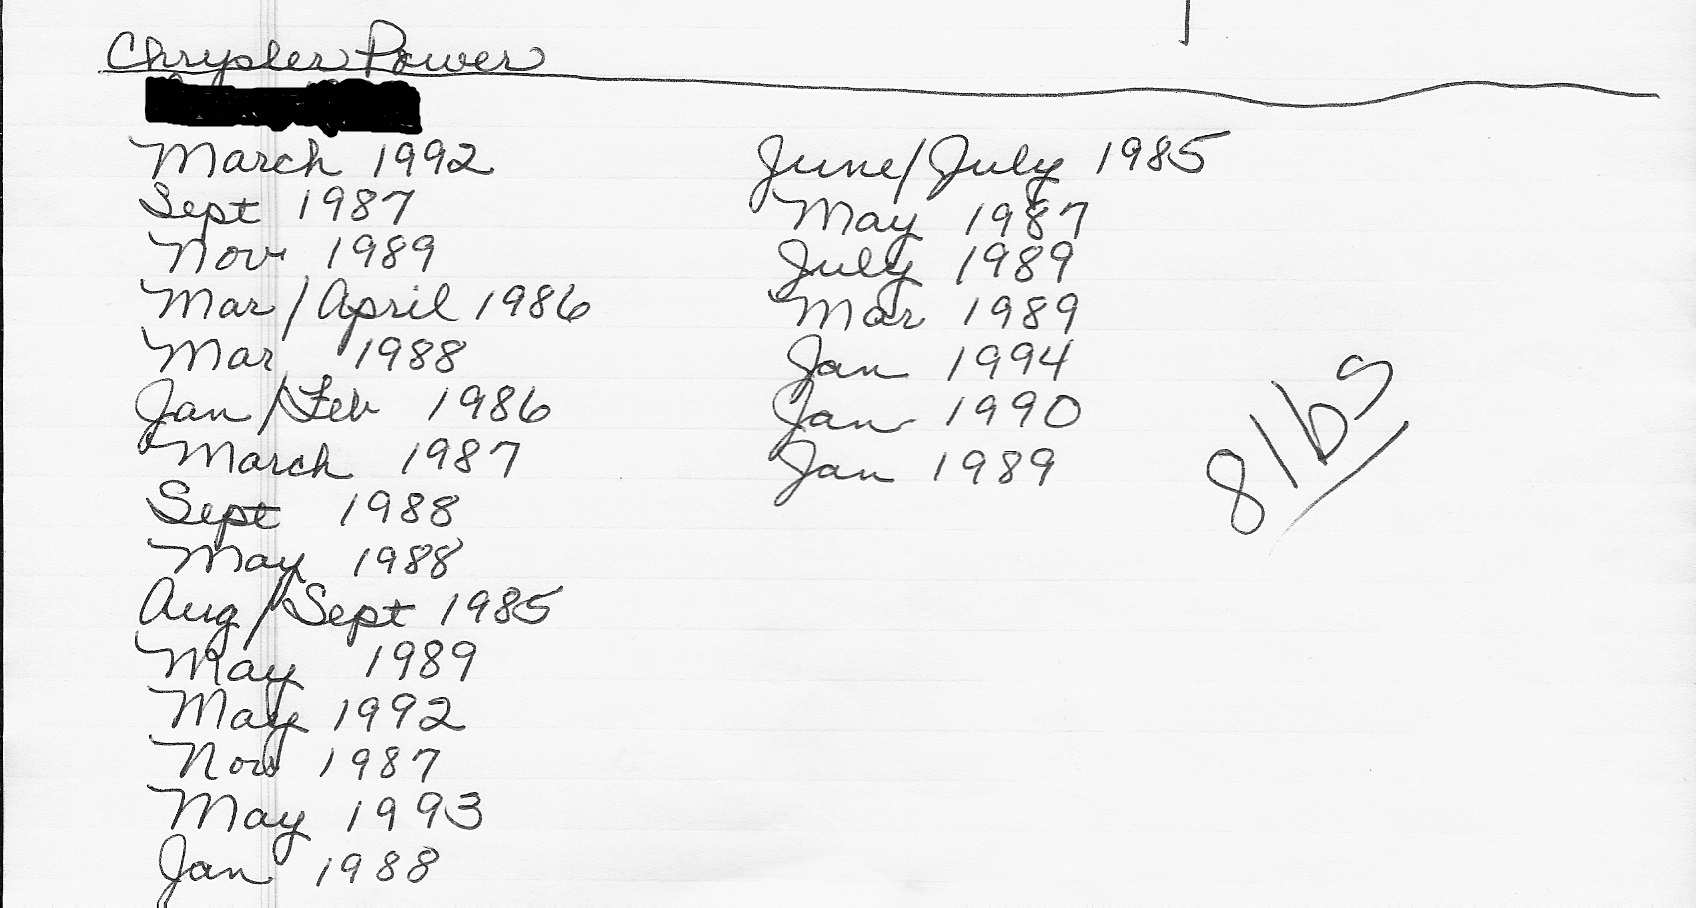 Chrysler Power
March 1992
Sept 1987
Nov 1989
Mar/April 1986
Mar 1988
Jan/Feb 1986
March 1987
Sept 1988
May 1988
Aug/Sept 1985
May 1989
May 1992
Nov 1987
May 1993
Jan 1988
June/July 1985
May 1987
July 1989
Mar 1989
Jan 1994
Jan 1990
Jan 1989
8 lbs